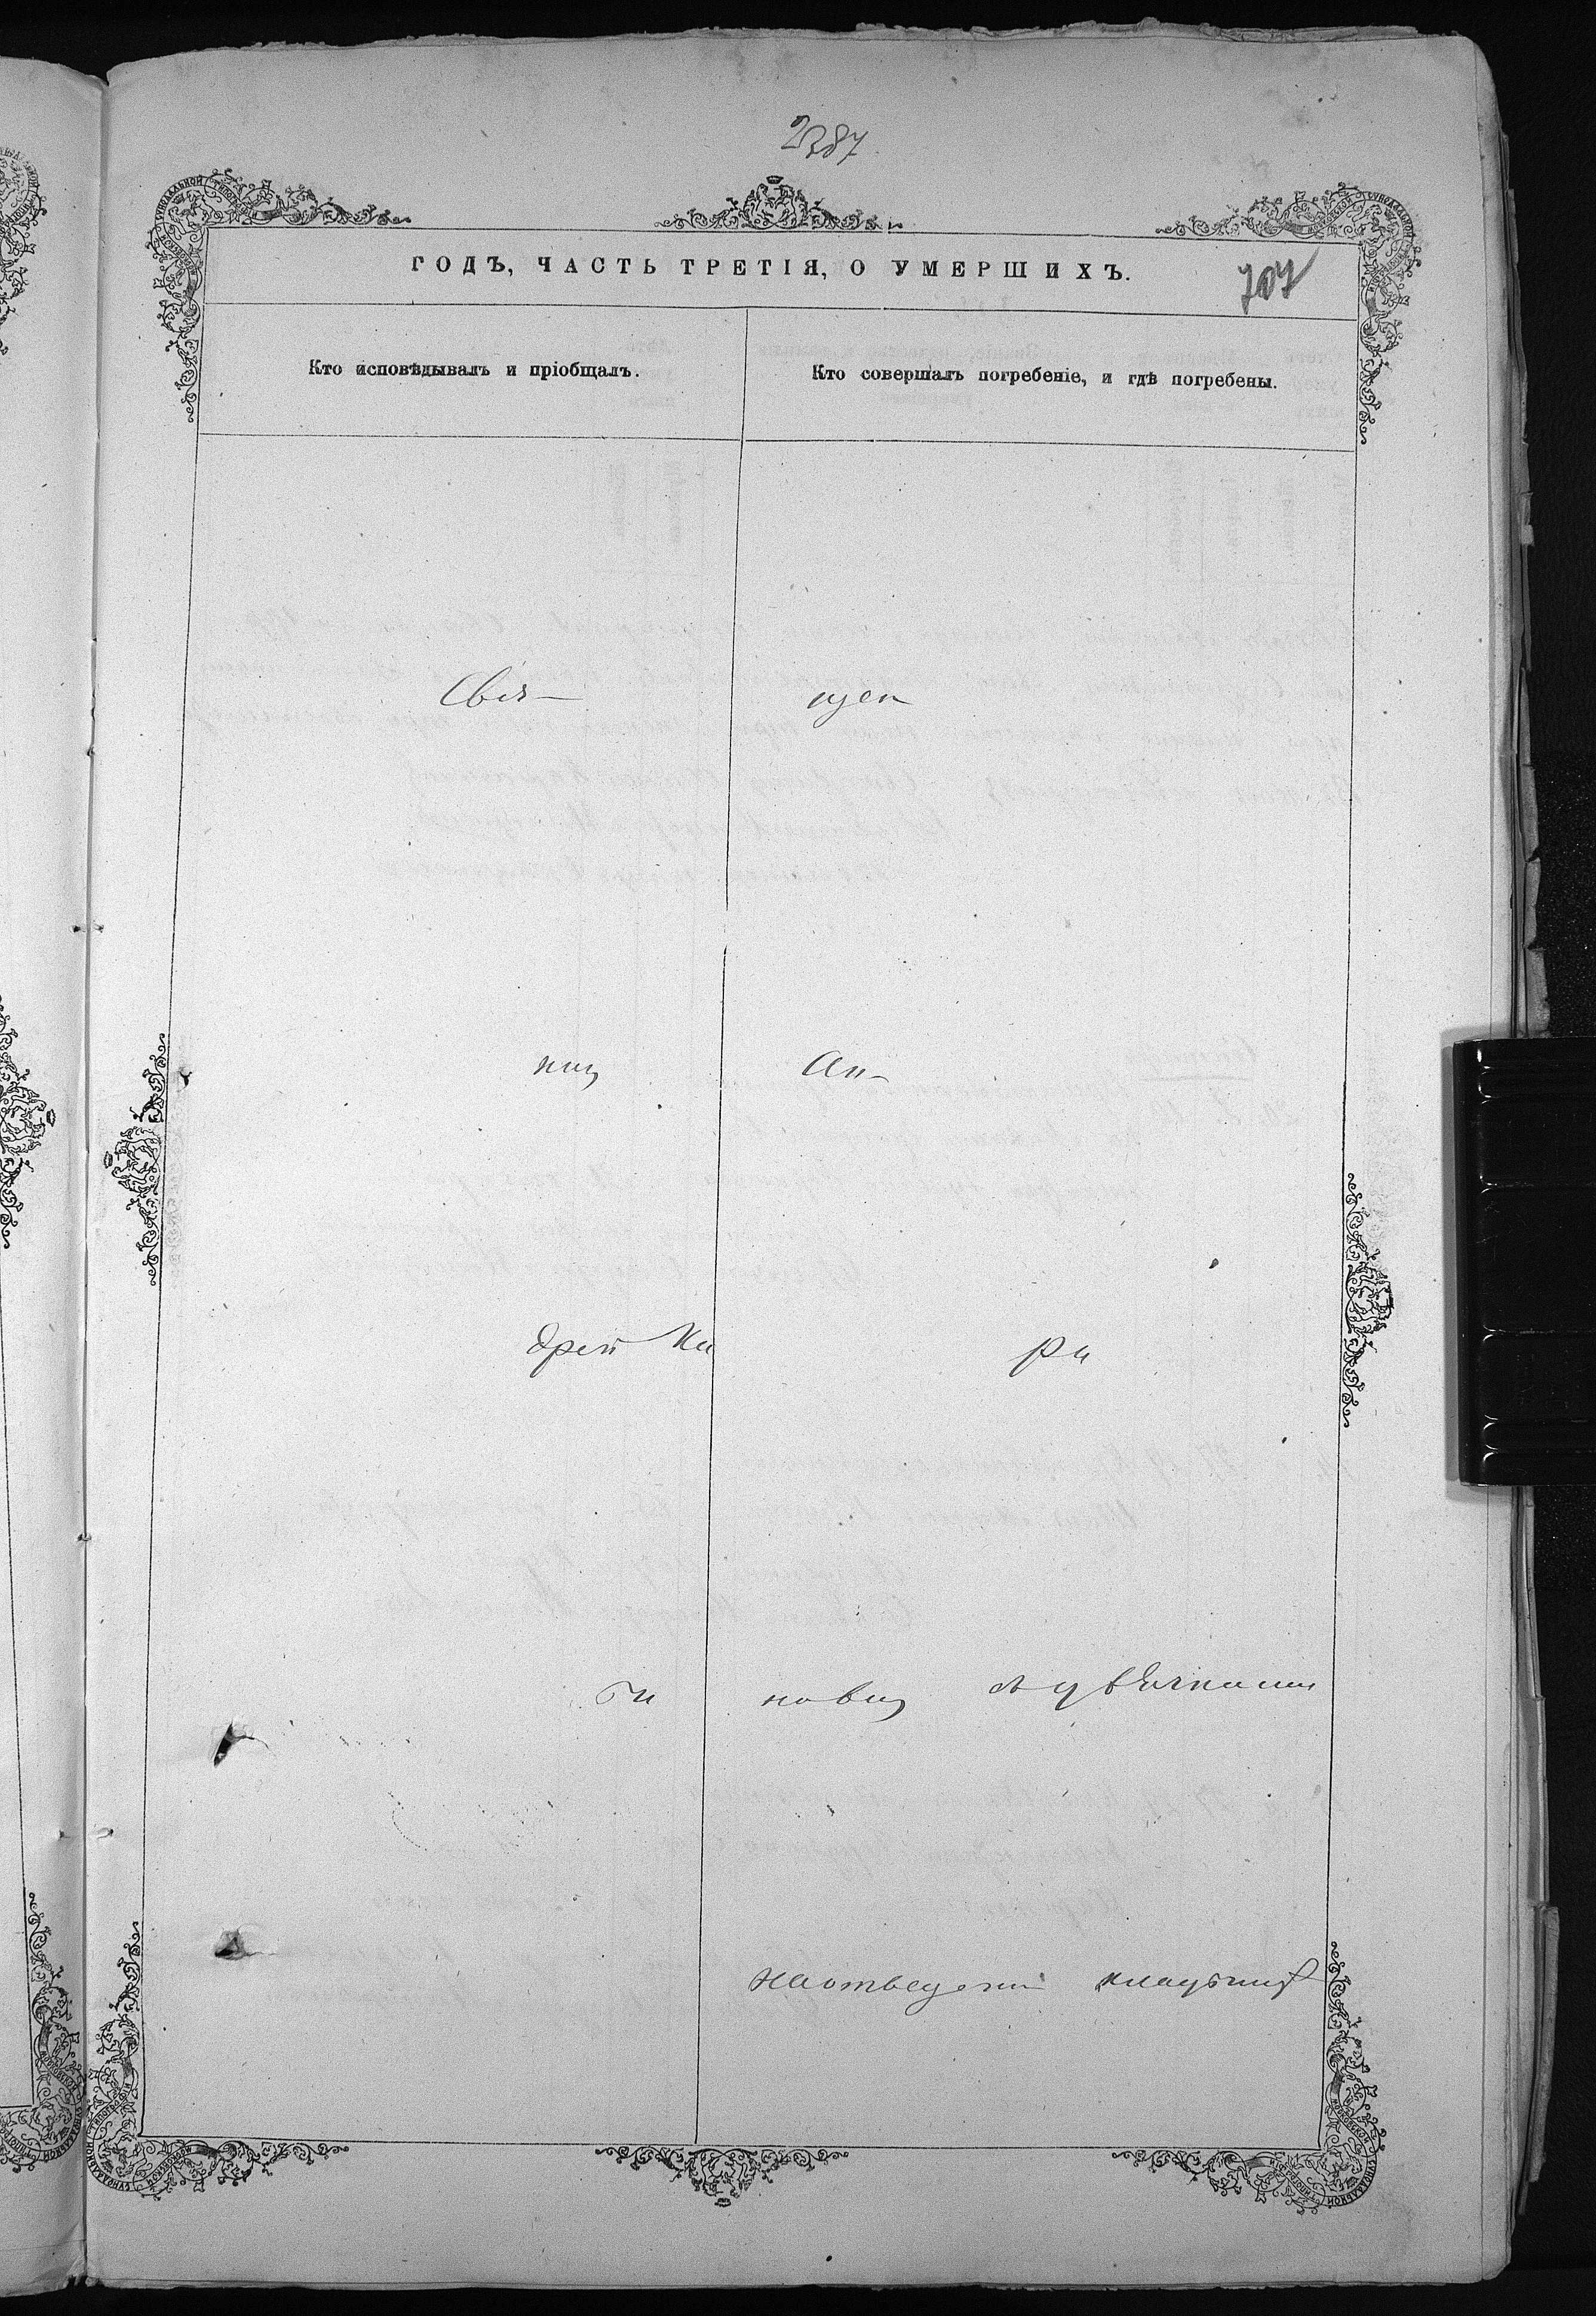 2387
ГОДЪ, ЧАСТЬ ТРЕТІЯ, О УМЕРШИХЪ.
707
Кто исповѣдывалъ и пріобщалъ.
Кто совершалъ погребеніе, и гдѣ погребены.
Свя— щен
никъ Ан—
дрей Ка ри
новъ
на отведен кладбищѣ